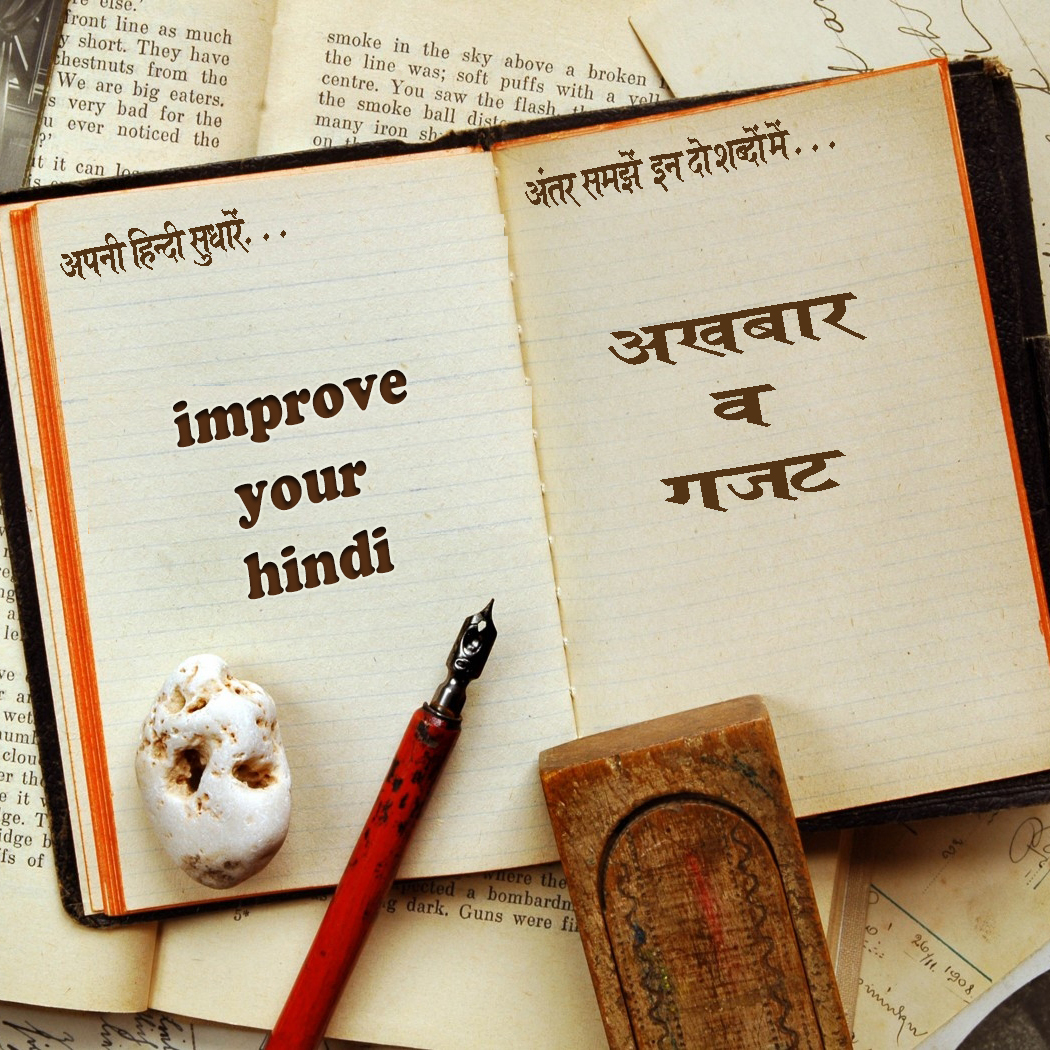 re else.'
front line as much
y short. They have
chestnuts from the
We are big eaters.
s very bad for the
u ever noticed the
?'
smoke in the sky above a broken
the line was; soft puffs with a
centre. You saw the flash,
the smoke ball
many iron
on
it can
अपनी हिन्दी सुधारें. . .
improve
your
hindi
अंतर समझें इन दो शब्दों में . . .
अखबार
व
गजट
where the
a
dark. Guns were
5*
26/11. 1908.